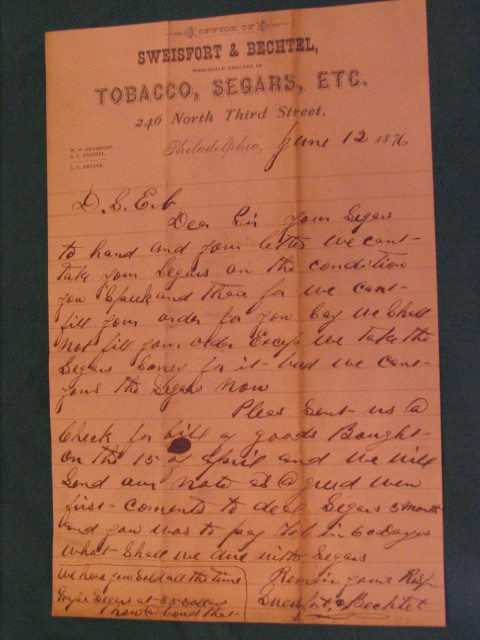 OFFICE OF
SWEISFORT & BECHTEL,
WHOLESALE DEALERS IN
TOBACCO, SEGARS, ETC.
246 North Third Street.
Philadelphia, June 12 1876
D. S. Erb
Dear Sir your Segars
to hand and your letter we cant
take your Segars on the condition
you Speak and there for we cant
fill your order for you Say we Shall
not fill your order Except we take the
Segars Sorry for it but we cant
the Segars now
Pleas Sent us a
Check for bill of goods Bought
on the 15 of April and we will
Send our note as agreed wen
first to deal Segars 3 month
and you was to pay Tob in 60 Days
what Shall we due with Segars
we have you Sold all the time
Segars at Dollars
Remain yours Resp
Sweisfort & Bechtel